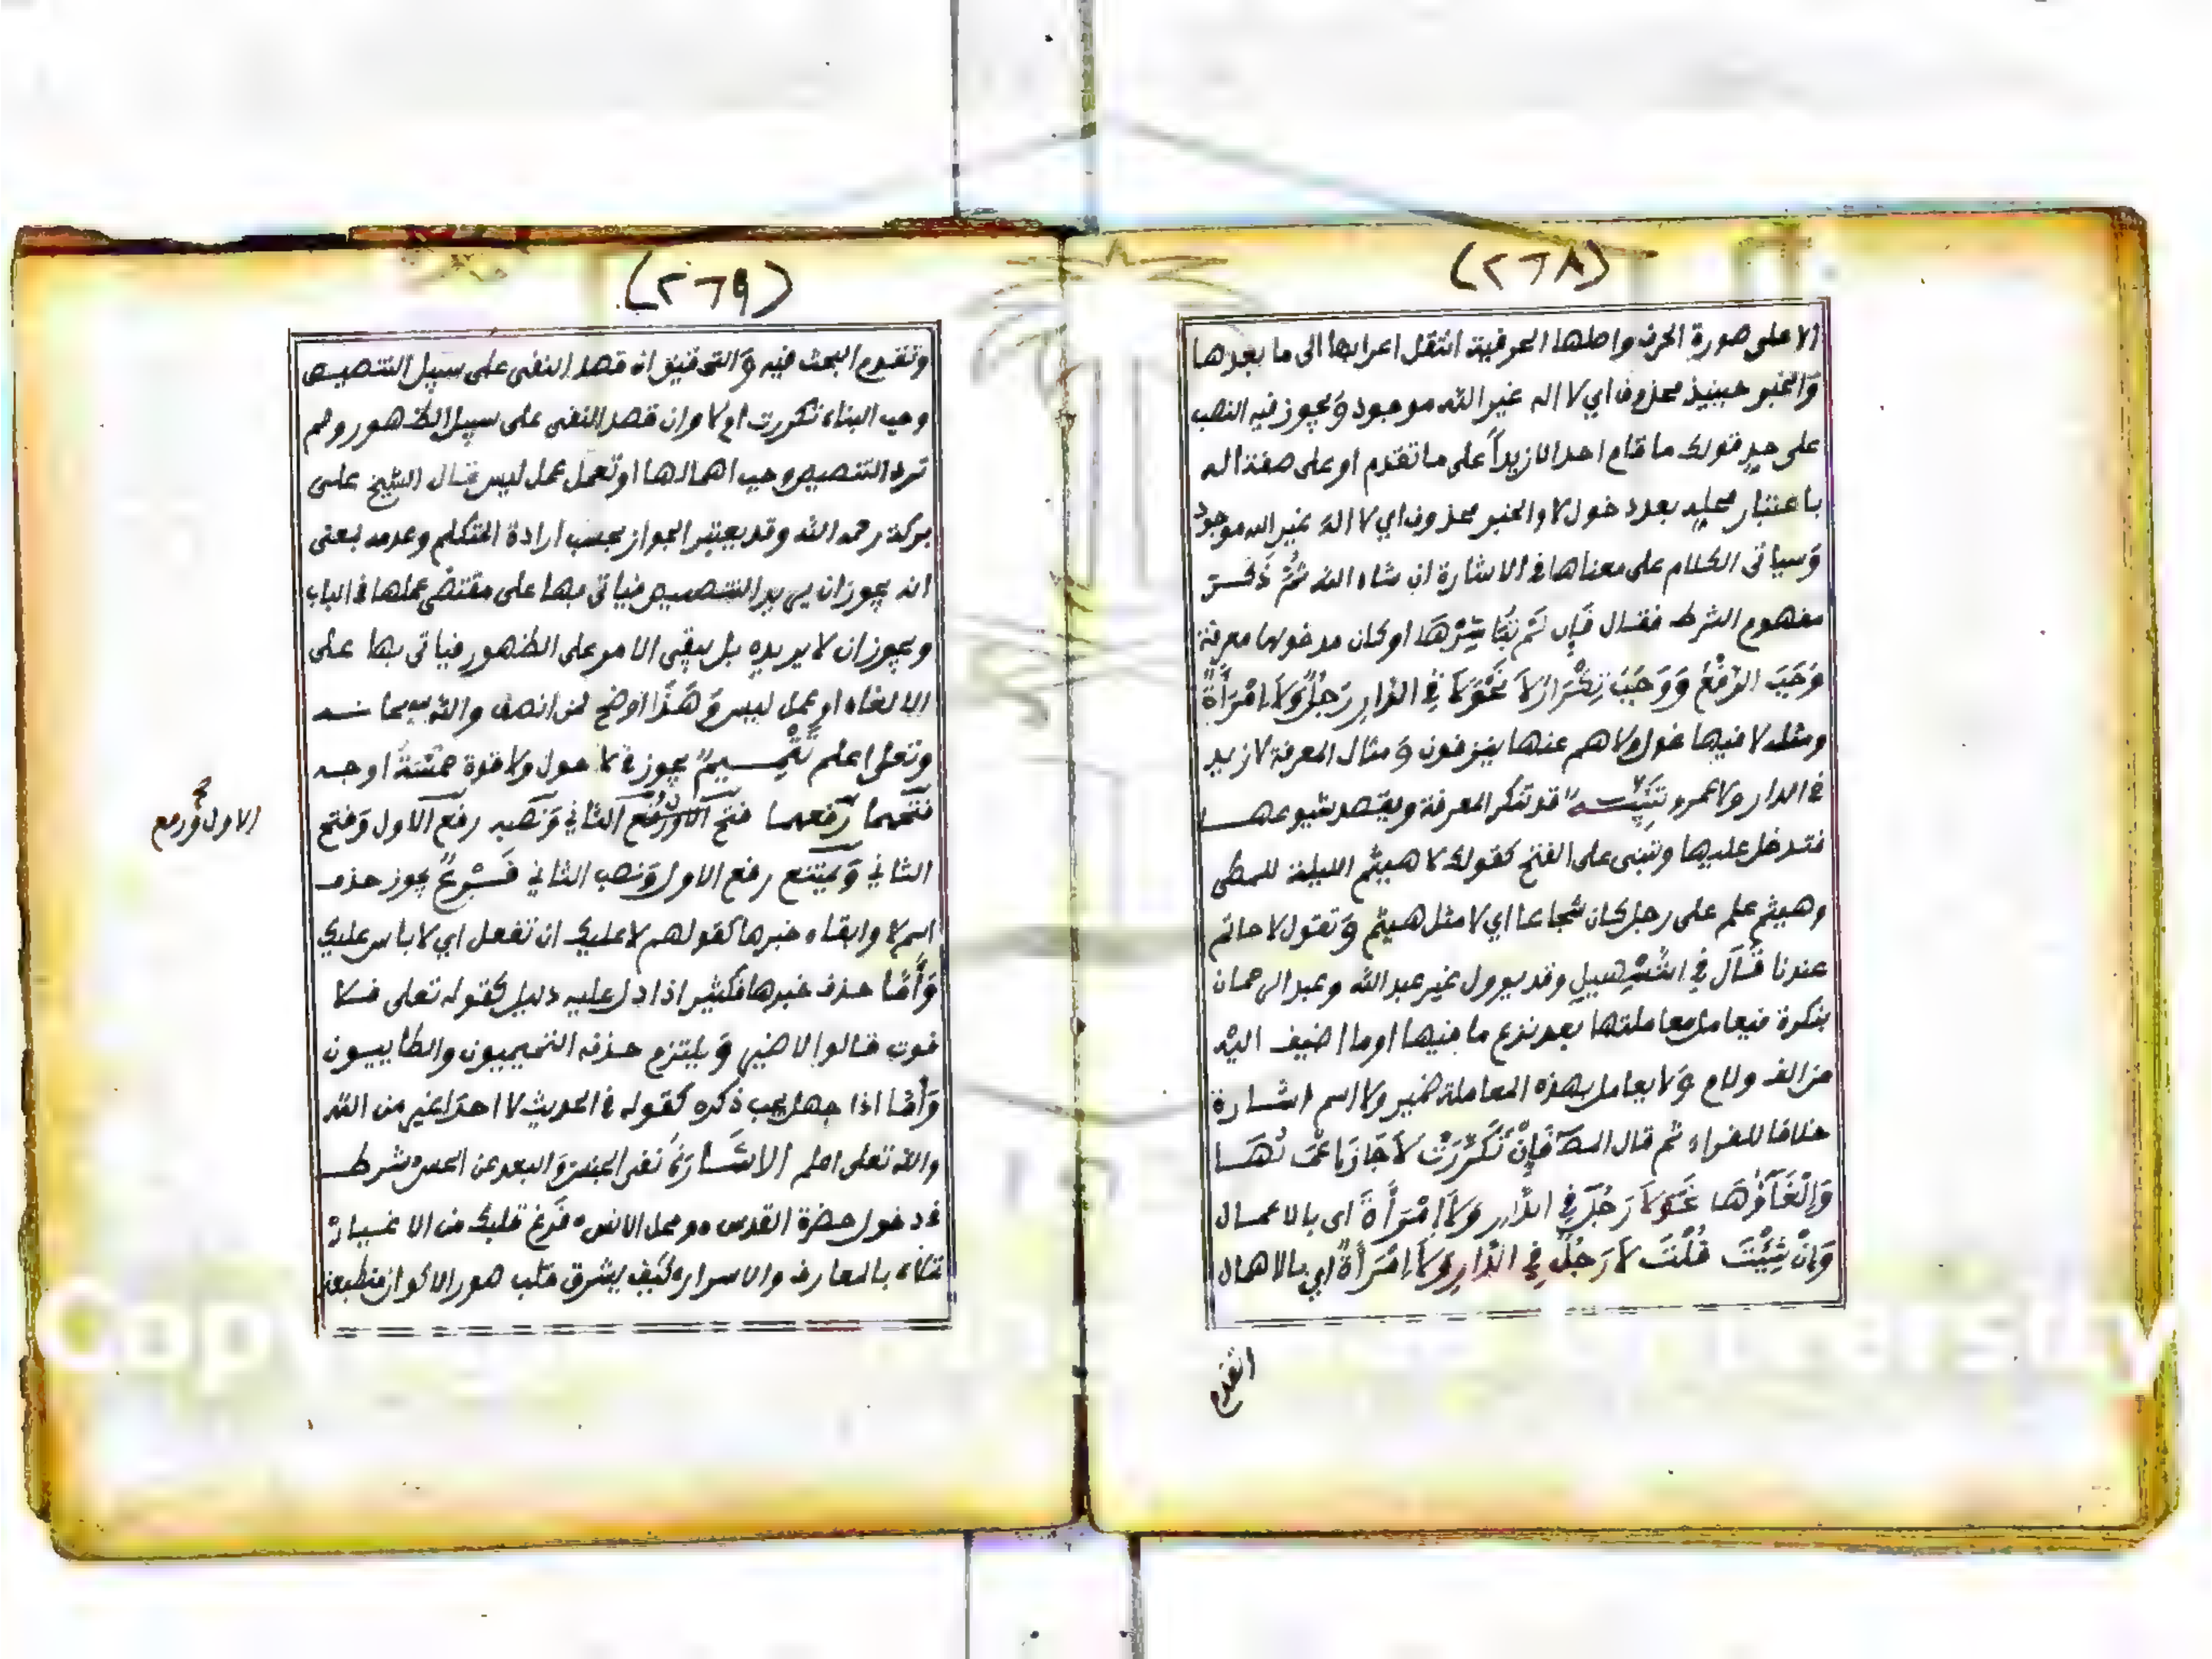 (٢٦٨)
الا على صورة الحرف واصلها الحرفية انتقل اعرابها الى ما بعدها
والخبر حينيذ محذوف اي لا اله غير الله موجود ويجوز فيه النصب
على حد قولك ما قام احد الا زيداً على ما تقدم او على صفة اله
باعتبار محله بعد دخول لا والخبر محذوف اي لا اله غير الله موجود
وسياتى الكلام على معناها في الاشارة ان شاء الله ثُمَّ ذَكَرَ
مفهوم الشرط فقال فَإِن لَمْ تُبَاشِرْهَا او كان مدخولها معرفة
وَجَبَ الرَّفْعُ وَوَجَبَ تِكْرَارُ لَا نَحْوَ لَا فِي الدَّارِ رَجُلٌ وَلَا امْرَأَةٌ
ومثله لا فيها غول ولا هم عنها ينزفون ومثال المعرفة لا زيد
في الدار ولا عمرو تنبيه قد تنكر المعرفة ويقصد شيوعها
فتدخل عليها وتبنى على الفتح كقولك لا هيثم الليلة للمطى
وهيثم علم على رجل كان شجاعا اي لا مثل هيثم وتقول لا حاتم
عندنا قَالَ في التسهيل وقد يوول غير عبد الله وعبد الرحمان
بنكرة فيعامل معاملتها بعد نزع ما فيها او ما اضيف اليه
من الف ولام ولا يعامل بهذه المعاملة ضمير ولا اسم اشارة
خلافا للفراء ثم قال المص فَإِنْ تَكَرَّرَتْ لَا جَازَ إِعْمَالُهَا
وَإِلْغَآؤُهَا نَحْوَ لَا رَجُلَ فِي الدَّارِ وَلَا امْرَأَةَ اى بالاعمال
وَإِنْ شِئْتَ قُلْتَ لَا رَجُلٌ فِي الدَّارِ وَلَا امْرَأَةٌ اي بالاهمال
(٢٦٩)
وتقدم البحث فيه والتحقيق انه قصد النفى على سبيل التنصيص
وجب البناء تكررت ام لا وان قصد النفى على سبيل الظهور ولم
ترد التنصيص وجب اهمالها او تعمل عمل ليس قال الشيخ على
بركة رحمه الله وقد يعتبر الجواز بحسب ارادة المتكلم وعدمه بمعنى
انه يجوز ان يريد التنصيص فياتى بها على مقتضى عملها في الباب
ويجوز ان لا يريده بل يبقى الامر على الظهور فياتى بها على
الالغاء او عمل ليس وَهَذَا اوضح لمن انصف والله سبحانه
وتعلى اعلم تَتْمِيمٌ يجوز في لا حول ولا قوة خمسة اوجه
فتحهما رفعهما فتح الاول ورفع الثاني ونصبه رفع الاول وفتح
الاول ورفع
الثاني ويمتنع رفع الاول ونصب الثاني فَرْعٌ يجوز حذف
اسم لا وابقاء خبرها كقولهم لا عليك ان تفعل اي لا باس عليك
وَأَمَّا حذف خبرها فكثير اذا دل عليه دليل كقوله تعلى فلا
فوت قالوا لا ضير ويلتزم حذفه التميميون والطاييون
وَأَمَّا اذا جهل يجب ذكره كقوله في الحديث لا احد اغير من الله
والله تعلى اعلم الاشَارَة نفى الجنس والبعد عن الحس شرط
في دخول حضرة القدس ومحل الانس فَرِّغ قلبك من الاغيار
تملاه بالمعارف والاسرار كيف يشرق قلب صور الاكوان منطبعة